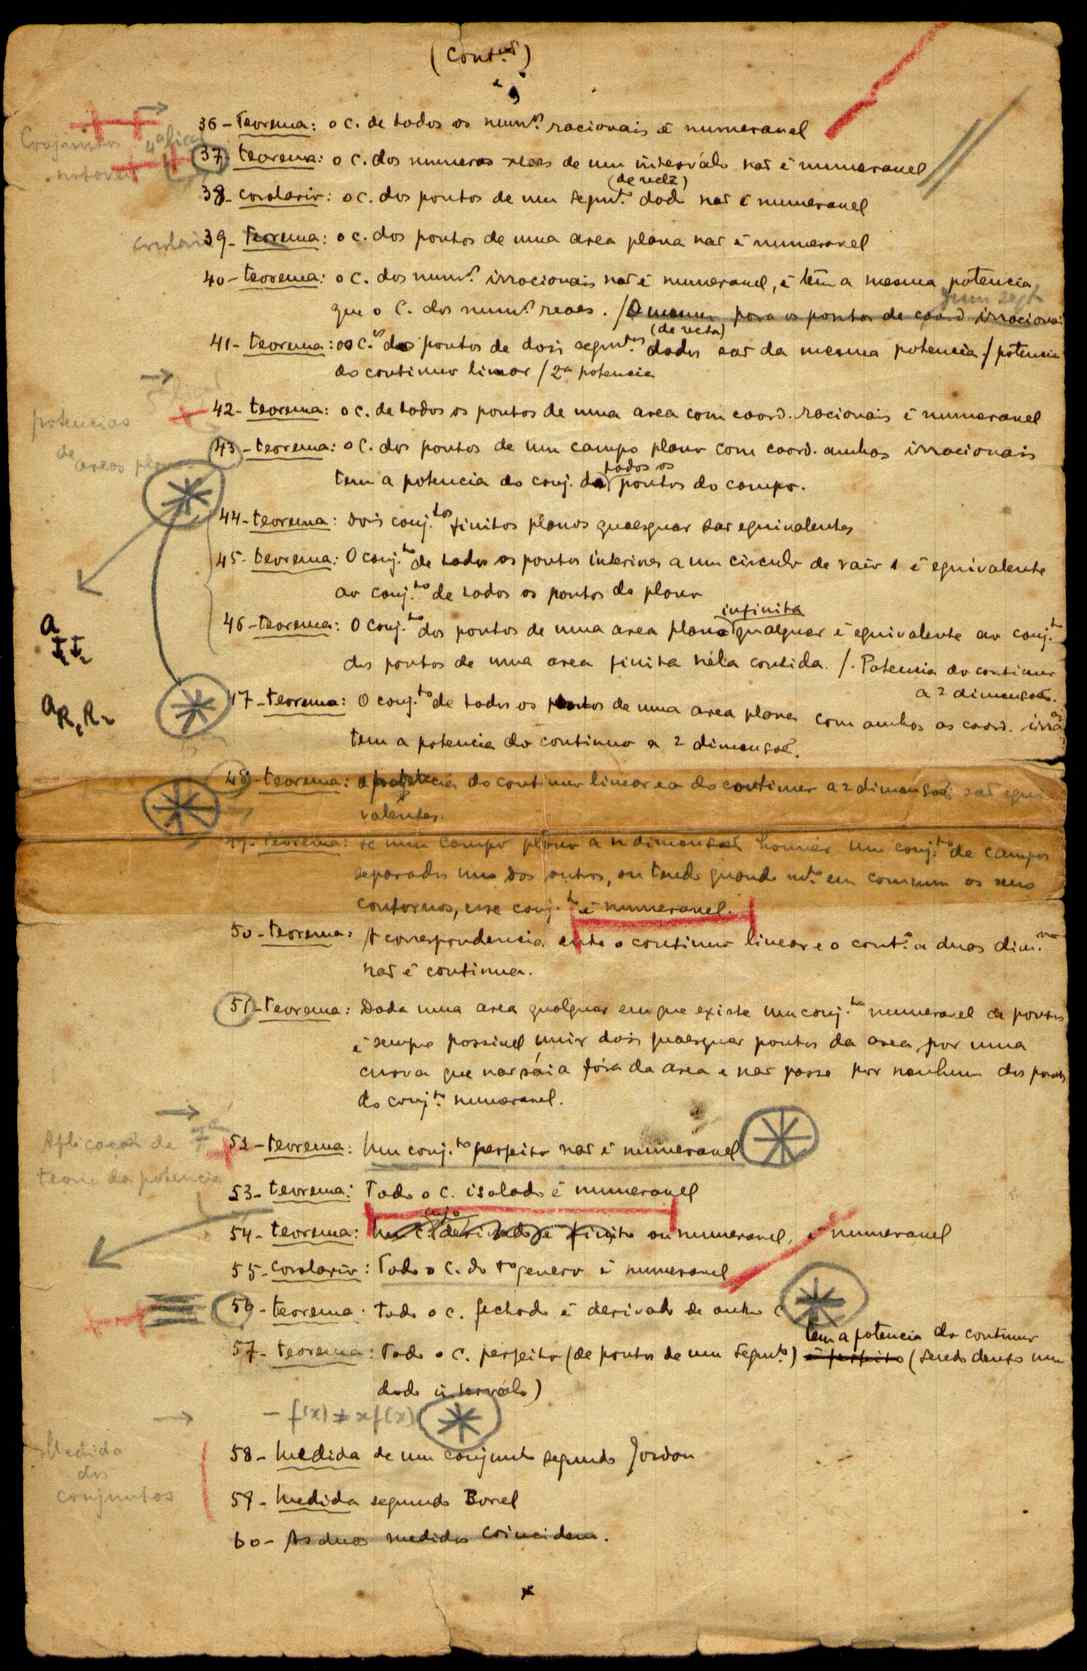 (Cont.ão)
36 - teorema: o c. de todos os num.os racionais é numeravel
Conjuntos
notaveis
37 - teorema: o c. dos numeros reaes de um intervalo não é numeravel
(de recta)
38 - corolario: o c. dos pontos de um segm.to dado não é numeravel
corolario 39 - teorema: o c. dos pontos de uma area plana não é numeravel
40 - teorema: o c. dos num.os irracionais não é numeravel, e tem a mesma potencia
que o c. dos num.os reaes. / O mesmo para os pontos de coord. irracionais
(de recta)
41 - teorema: os c.os dos pontos de dois segm.tos dados são da mesma potencia / potencia
do continuo linear / 2ª potencia
42 - teorema: o c. de todos os pontos de uma area com coord. racionais é numeravel
potencias
de
areas planas
43 - teorema: o c. dos pontos de um campo plano com coord. ambas irracionais
tem a potencia do conj. de todos os pontos do campo.
44 - teorema: dois conj.tos finitos planos quaesquer são equivalentes
45 - teorema: O conj.to de todos os pontos interiores a um circulo de raio 1 é equivalente
ao conj.to de todos os pontos do plano
infinita
46 - teorema: O conj.to dos pontos de uma area plana qualquer é equivalente ao conj.to
dos pontos de uma area finita nela contida. /. Potencia do continuo
a 2 dimensões.
a I₁ I₂
a R₁ R₂
47 - teorema: O conj.to de todos os pontos de uma area plana com ambas as coord. irra.as
tem a potencia do continuo a 2 dimensões.
48 - teorema: a potencia do continuo linear e a do continuo a 2 dimensões são equi
valentes.
49 - teorema: se num campo plano a n dimensões houver um conj.to de campos
separados uns dos outros, ou tendo quando m.to em commum os seus
contornos, esse conj.to é numeravel.
50 - teorema: A correspondencia entre o continuo linear e o cont.o a duas dim.
não é continua.
51 - teorema: Dada uma area qualquer em que existe um conj.to numeravel de pontos
é sempre possivel unir dois quaesquer pontos da area, por uma
curva que não sáia fóra da area e não passe por nenhum dos pontos
do conj.to numeravel.
Aplicação de
teoria da potencia
52 - teorema: Um conj.to perfeito não é numeravel
53 - teorema: Todo o c. isolado é numeravel
54 - teorema: Um c. cujo derivado é finito ou numeravel, é numeravel
55 - corolario: Todo o c. do 1º genero é numeravel
56 - teorema: todo o c. fechado é derivado de outro c
tem a potencia do continuo
57 - teorema: Todo o c. perfeito (de pontos de um segm.to) é perfeito (sendo denso num
dado intervalo)
Medida
dos
conjuntos
58 - Medida de um conjunto segundo Jordan
59 - Medida segundo Borel
60 - As duas medidas coincidem.